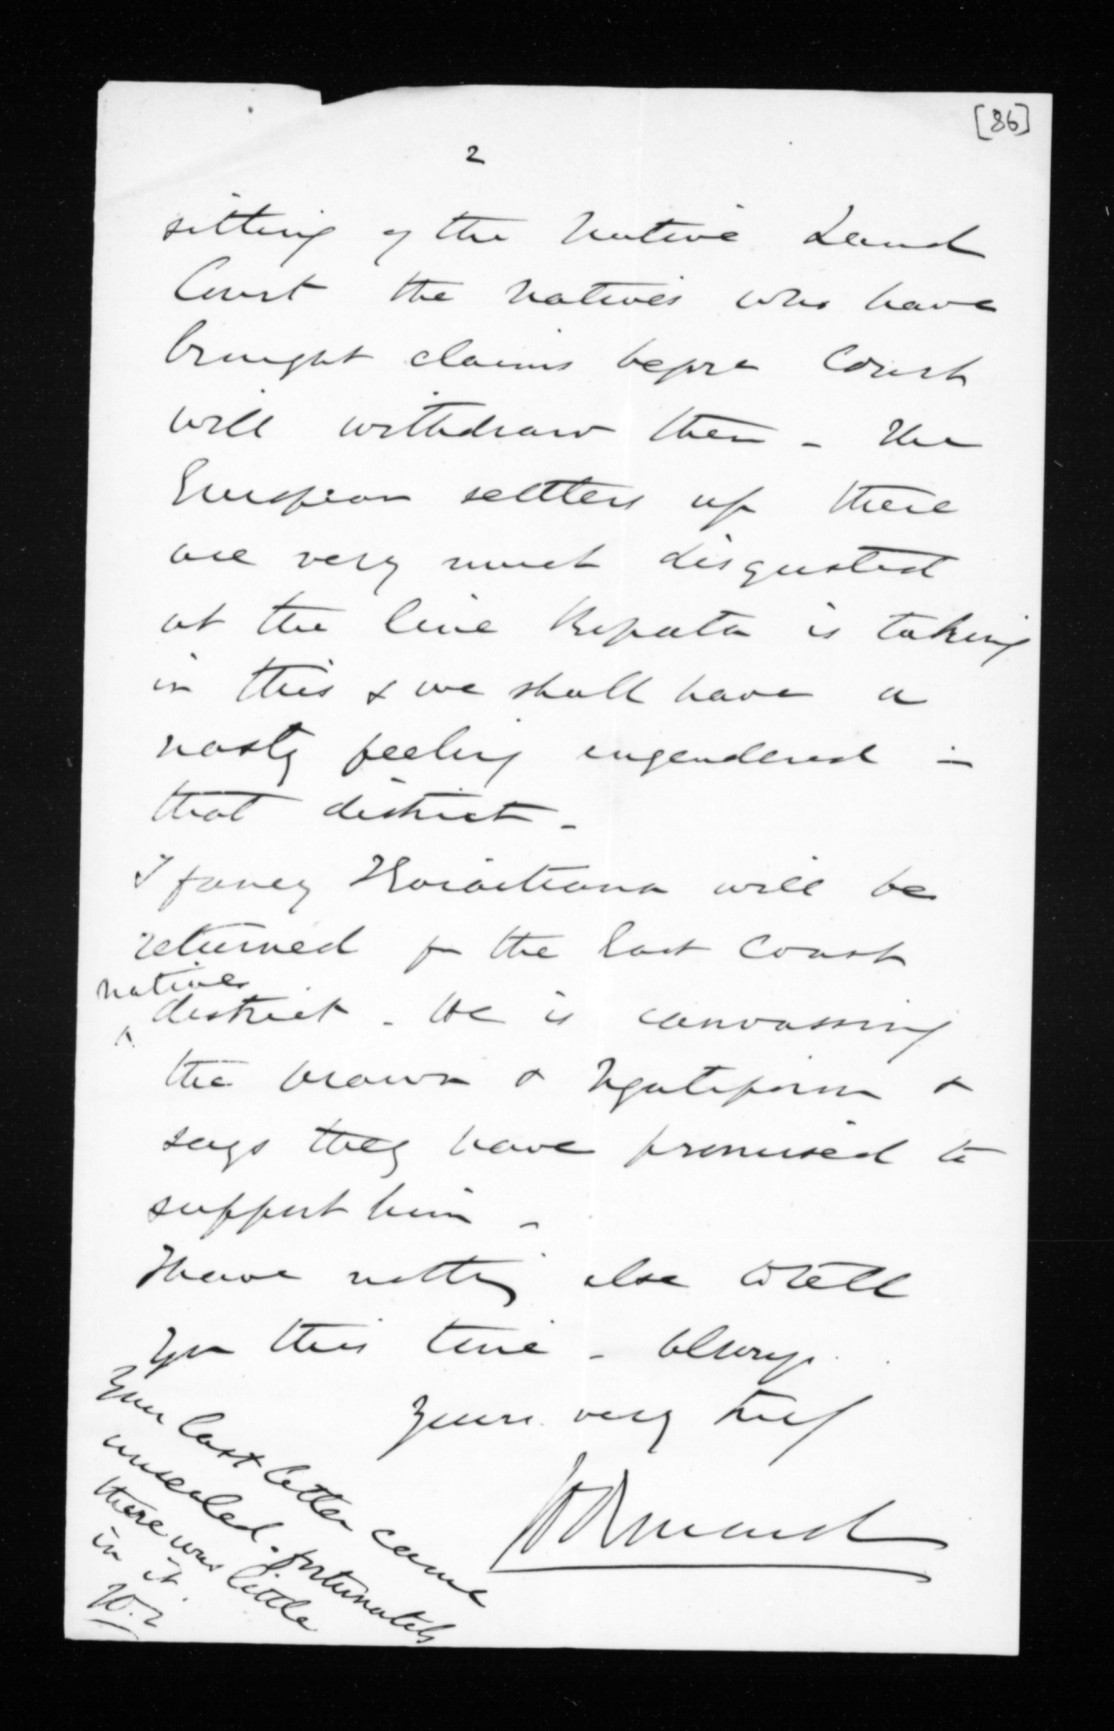 [86]
2
sitting of the Native Land
Court the natives who have
brought claims before Court
will withdraw them - The
European settlers up there
are very much disgusted
at the line Ropata is taking
in this & we shall have a
nasty feeling engendered in
that district -
I fancy Karaitiana will be
returned for the East Coast
natives
district - He is canvassing
the & Ngatiporou &
says they have promised to
support him -
I have nothing else to tell
you this time - always
yours very truly
Your last letter came
unsealed - fortunately
there was little
in it.